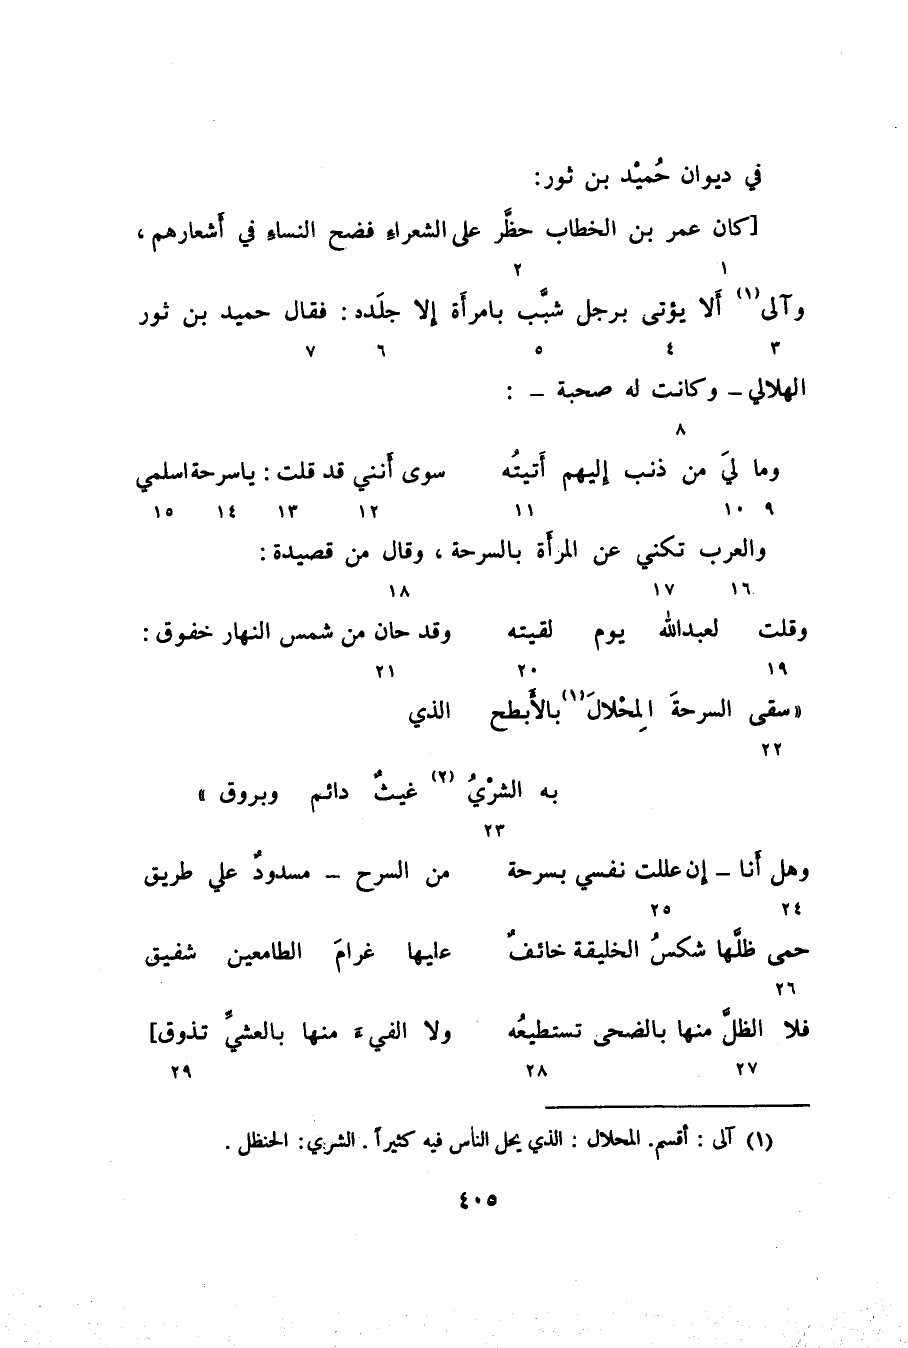 في ديوان حُميْد بن ثور:
[كان عمر بن الخطاب حظَّر على الشعراء فضح النساء في أشعارهم ،
١ ٢
وآلى(١) ألا يؤتى برجل شبَّب بامرأة إلا جلَده : فقال حميد بن ثور
٣ ٤ ٥ ٦ ٧
الهلالي – وكانت له صحبة – :
٨
وما ليَ من ذنب إليهم أتيتُه سوى أنني قد قلت : ياسرحة اسلمي
٩ ١٠ ١١ ١٢ ١٣ ١٤ ١٥
والعرب تكني عن المرأة بالسرحة ، وقال من قصيدة :
١٦ ١٧ ١٨
وقلت لعبدالله يوم لقيته وقد حان من شمس النهار خفوق :
١٩ ٢٠ ٢١
«سقى السرحةَ المِحْلالَ(١) بالأبطح الذي
٢٢
به الشرْيُ(٢) غيثٌ دائم وبروق »
٢٣
وهل أنا – إن عللت نفسي بسرحة من السرح – مسدودٌ علي طريق
٢٤ ٢٥
حمى ظلَّها شكسُ الخليقة خائفٌ عليها غرامَ الطامعين شفيق
٢٦
فلا الظلَّ منها بالضحى تستطيعُه ولا الفيءَ منها بالعشيِّ تذوق]
٢٧ ٢٨ ٢٩
(١) آلى : أقسم. المحلال : الذي يحل الناس فيه كثيراً . الشري: الحنظل .
٤٠٥